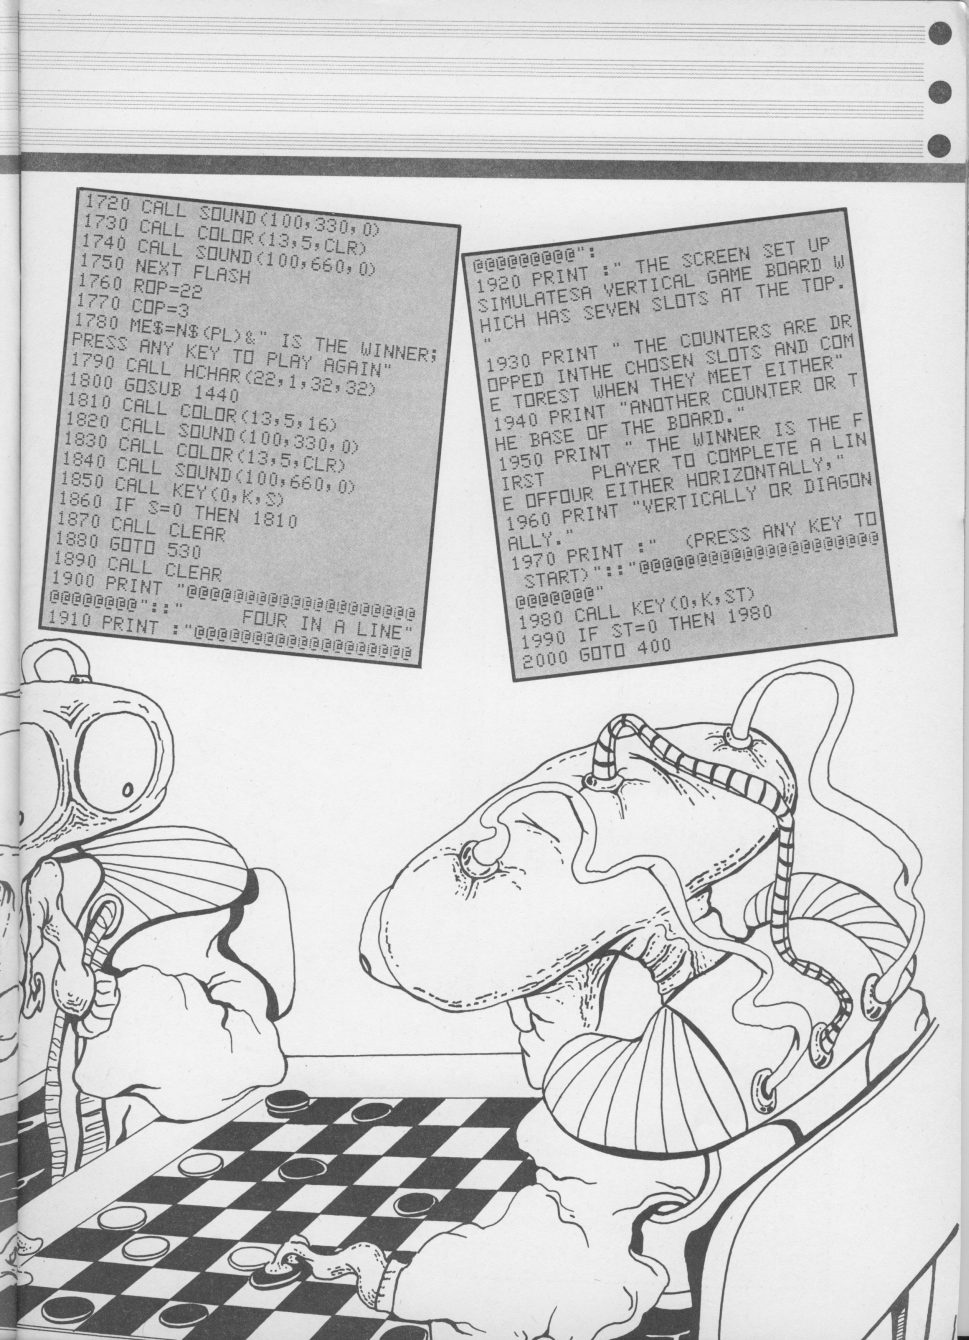 1720 CALL SOUND(100,330,0)
1730 CALL COLOR(13,5,CLR)
1740 CALL SOUND(100,660,0)
1750 NEXT FLASH
1760 ROP=22
1770 COP=3
1780 ME$=N$(PL)&" IS THE WINNER;
PRESS ANY KEY TO PLAY AGAIN"
1790 CALL HCHAR(22,1,32,32)
1800 GOSUB 1440
1810 CALL COLOR(13,5,16)
1820 CALL SOUND(100,330,0)
1830 CALL COLOR(13,5,CLR)
1840 CALL SOUND(100,660,0)
1850 CALL KEY(0,K,S)
1860 IF S=0 THEN 1810
1870 CALL CLEAR
1880 GOTO 530
1890 CALL CLEAR
1900 PRINT "@@@@@@@@@@@@@@@@@@@
@@@@@@@@@"::"      FOUR IN A LINE"
1910 PRINT :"@@@@@@@@@@@@@@@@@@
@@@@@@@@@@":
1920 PRINT :" THE SCREEN SET UP
SIMULATESA VERTICAL GAME BOARD W
HICH HAS SEVEN SLOTS AT THE TOP.
"
1930 PRINT " THE COUNTERS ARE DR
OPPED INTHE CHOSEN SLOTS AND COM
E TOREST WHEN THEY MEET EITHER"
1940 PRINT "ANOTHER COUNTER OR T
HE BASE OF THE BOARD."
1950 PRINT " THE WINNER IS THE F
IRST     PLAYER TO COMPLETE A LIN
E OFFOUR EITHER HORIZONTALLY,"
1960 PRINT "VERTICALLY OR DIAGON
ALLY."
1970 PRINT :"  (PRESS ANY KEY TO
START)"::"@@@@@@@@@@@@@@@@@@@@@
@@@@@@@"
1980 CALL KEY(0,K,ST)
1990 IF ST=0 THEN 1980
2000 GOTO 400